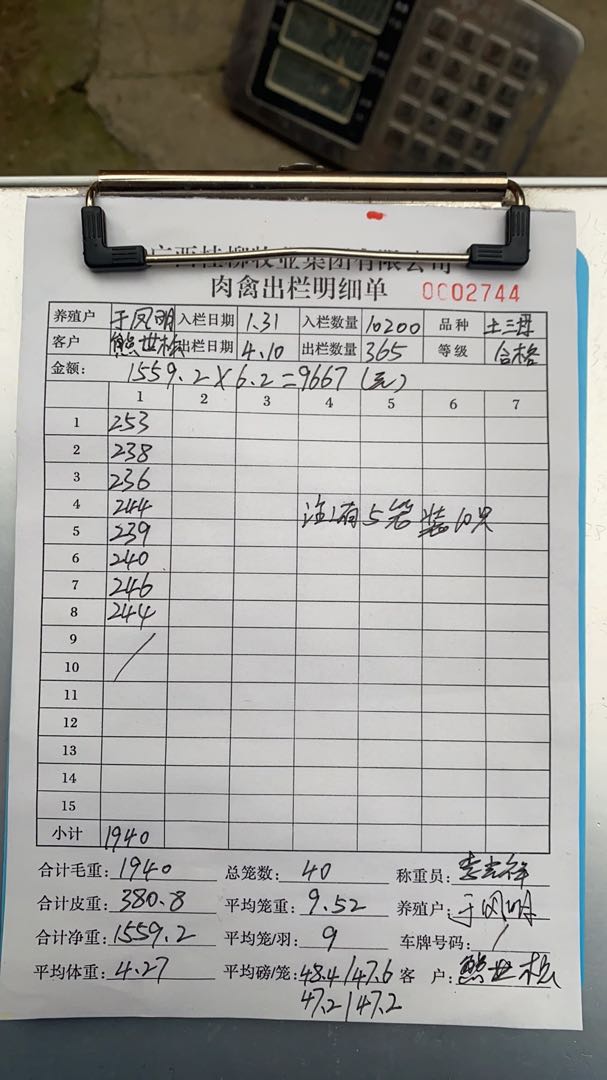 广西桂柳牧业集团有限公司
肉禽出栏明细单 0002744
养殖户 于凤明 入栏日期 1.31 入栏数量 10200 品种 土三丹
客户 熊世松 出栏日期 4.10 出栏数量 365 等级 合格
金额: 1559.2×6.2=9667(元)
1 2 3 4 5 6 7
1 253
2 238
3 236
4 244
5 239
注:有5笼装10只
6 240
7 246
8 244
9
10
11
12
13
14
15
小计 1940
合计毛重: 1940 总笼数: 40 称重员: 李吉祥
合计皮重: 380.8 平均笼重: 9.52 养殖户: 于凤明
合计净重: 1559.2 平均笼/羽: 9 车牌号码: /
平均体重: 4.27 平均磅/笼: 48.4/47.6 客 户: 熊世松
47.2/47.2